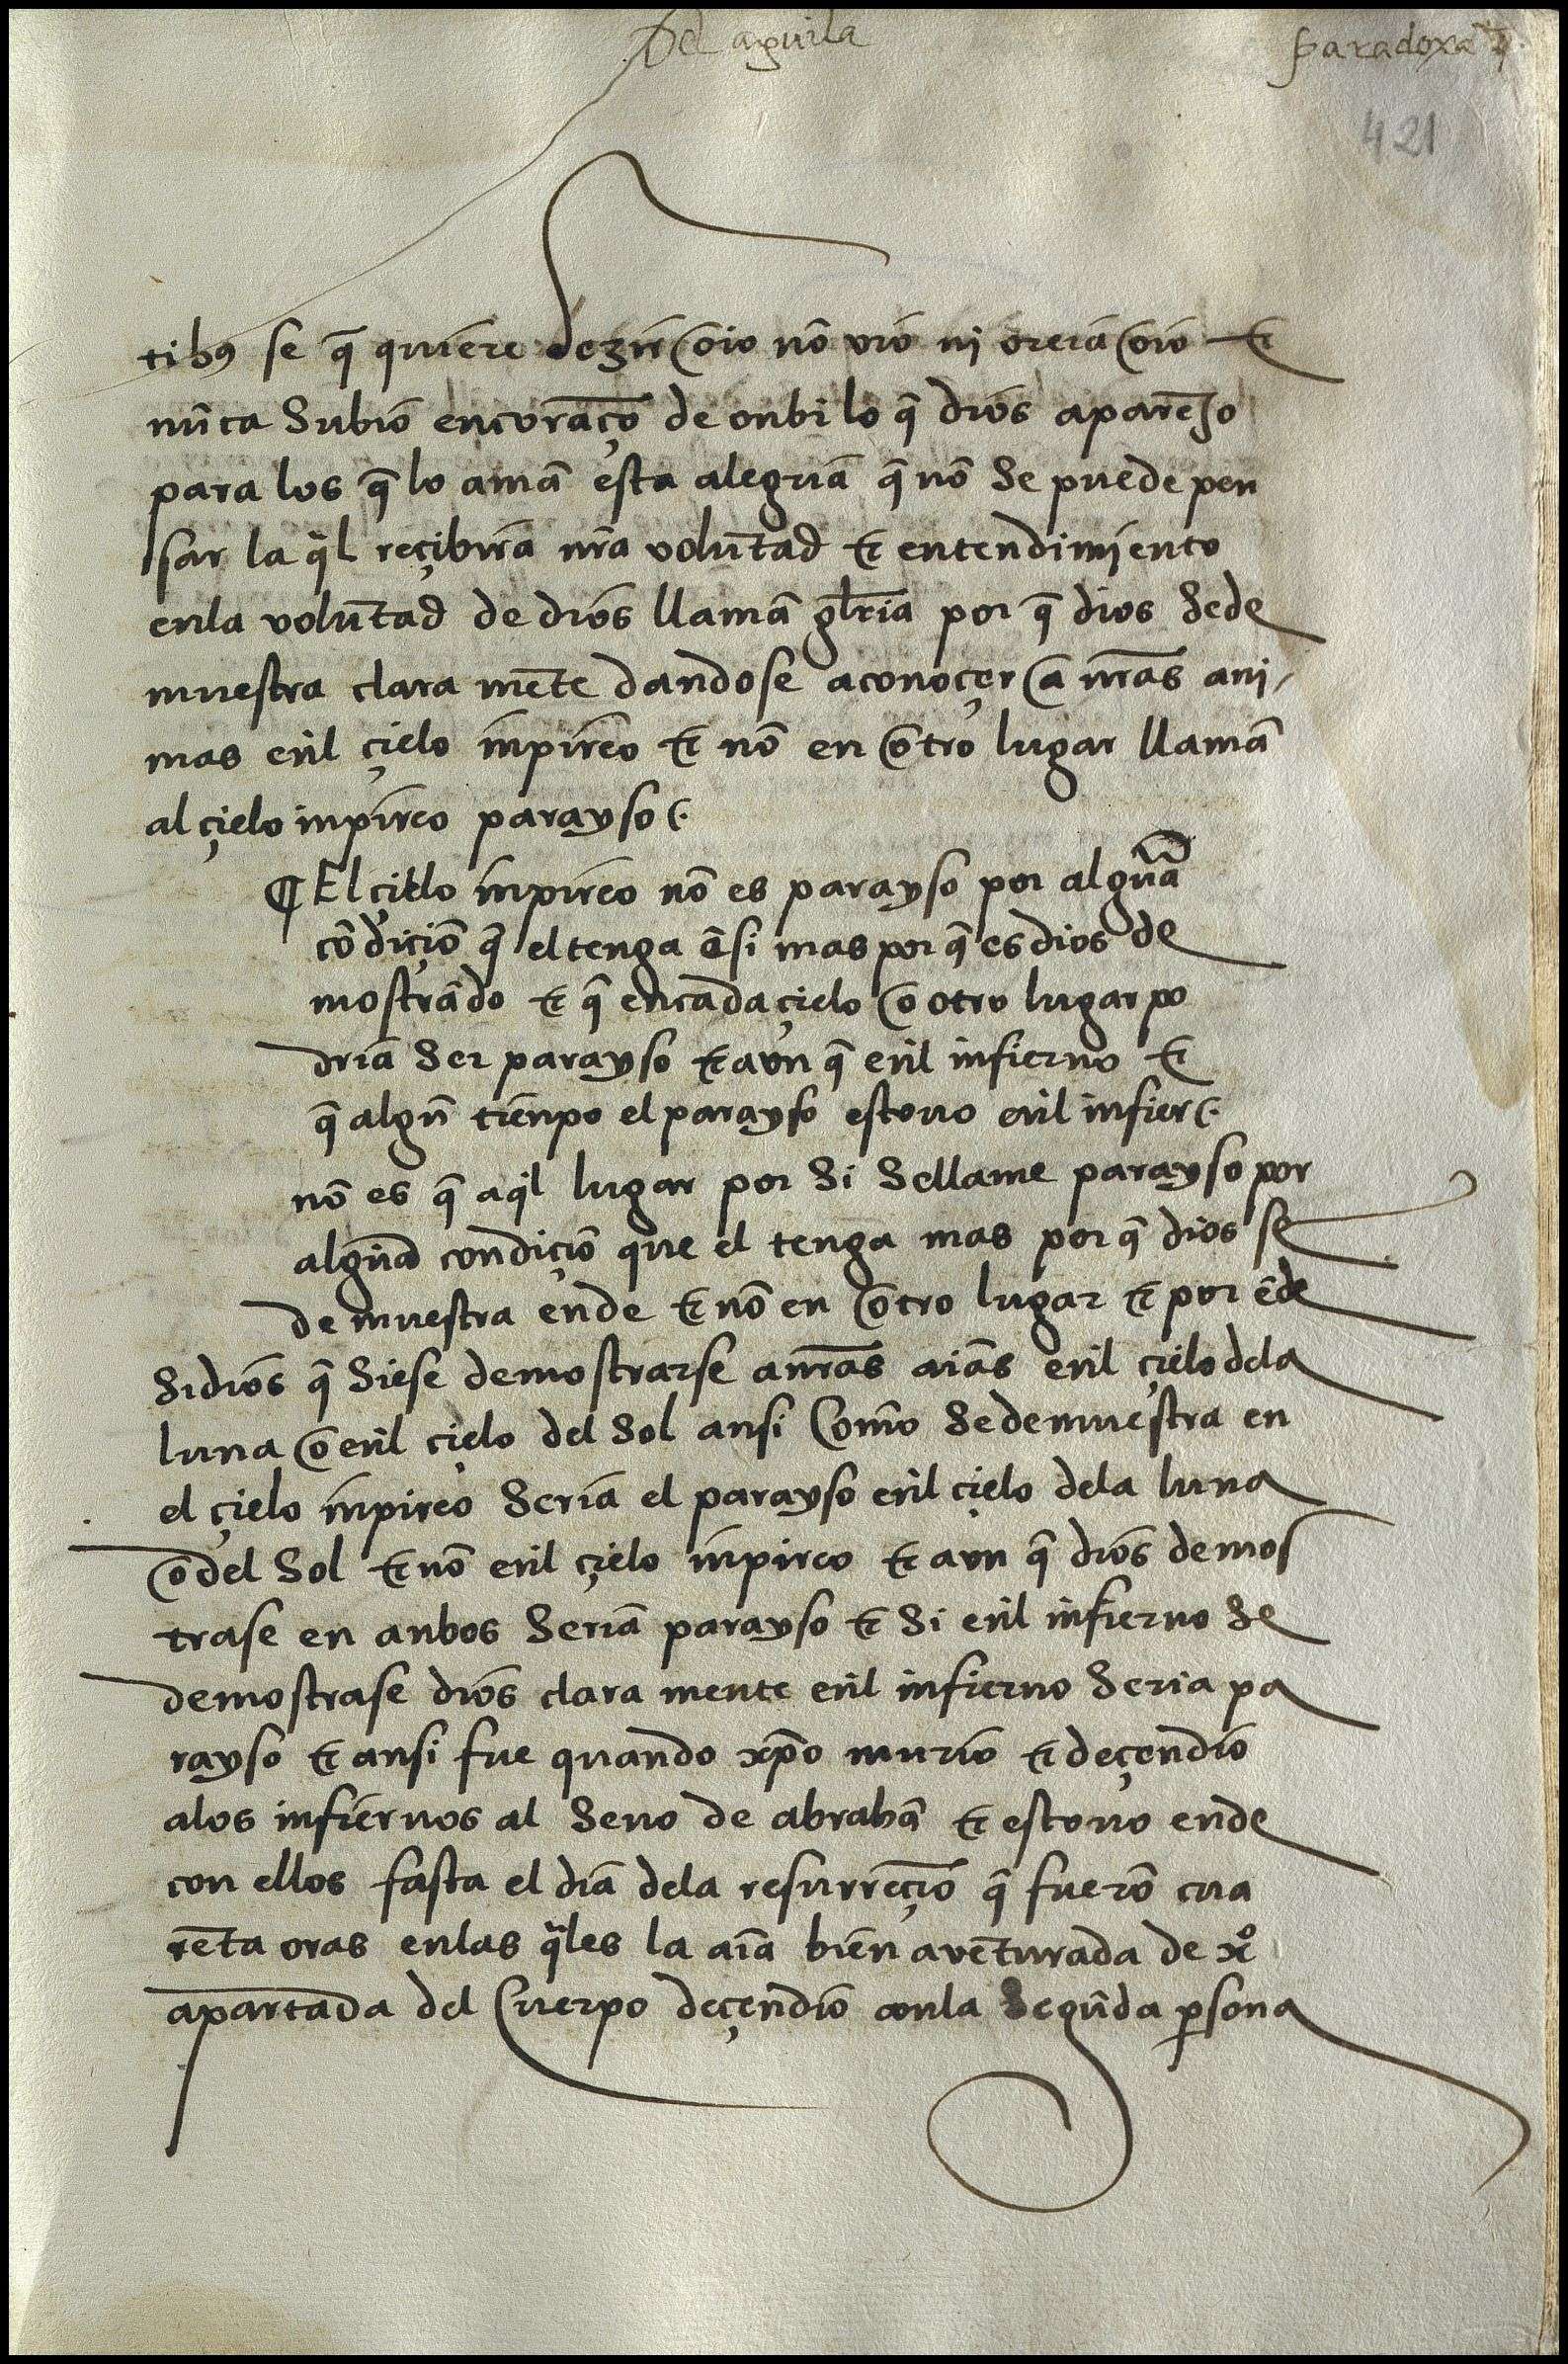 Del aguila
paradoxa 4ª
421
tibꝯ se q̃ quiere dezir oio nõ vio ni oreia oio ⁊
nũca subio encoraçõ de onbi lo q̃ dios aparejo
para los q̃ lo amã esta alegria q̃ nõ se puede pen
sar la q̃l reçibira nr̃a volũtad ⁊ entendimiento
enla volũtad de dios llamã gl̃ria por q̃ dios sede
muestra clara mẽte dandose aconoçer a nr̃as ani
mas eñl çielo inpireo ⁊ nõ en otro lugar llamã
al çielo inpireo parayso
¶ El çielo inpireo nõ es parayso por algũa
cõdiçiõ q̃ el tenga ẽ si mas por q̃ es dios de
mostrãdo ⁊ q̃ encada çielo o otro lugar po
dria ser parayso ⁊ avn q̃ eñl infierno ⁊
q̃ algũ tienpo el parayso estouo eñl infier
nõ es q̃ aq̃l lugar por si sellame parayso por
algũa condiçiõ que el tenga mas por q̃ dios se
demuestra ende ⁊ nõ en otro lugar ⁊ por ẽde
si dios q̃ siese demostrarse a nr̃as aĩas eñl çielo dela
luna o eñl çielo del sol ansi como sedemuestra en
el çielo inpireo seria el parayso eñl çielo dela luna
o del sol ⁊ nõ eñl çielo inpireo ⁊ avn q̃ dios demos
trase en anbos seriã parayso ⁊ si eñl infierno se
demostrase dios clara mente eñl infierno seria pa
rayso ⁊ ansi fue quando xp̃o murio ⁊ deçendio
alos infiernos al seno de abrahã ⁊ estouo ende
con ellos fasta el dia dela resurreçiõ q̃ fuerõ cua
rẽta oras enlas q̃les la aĩa bien avẽturada de xº
apartada del cuerpo deçendio conla segũda p̱sona